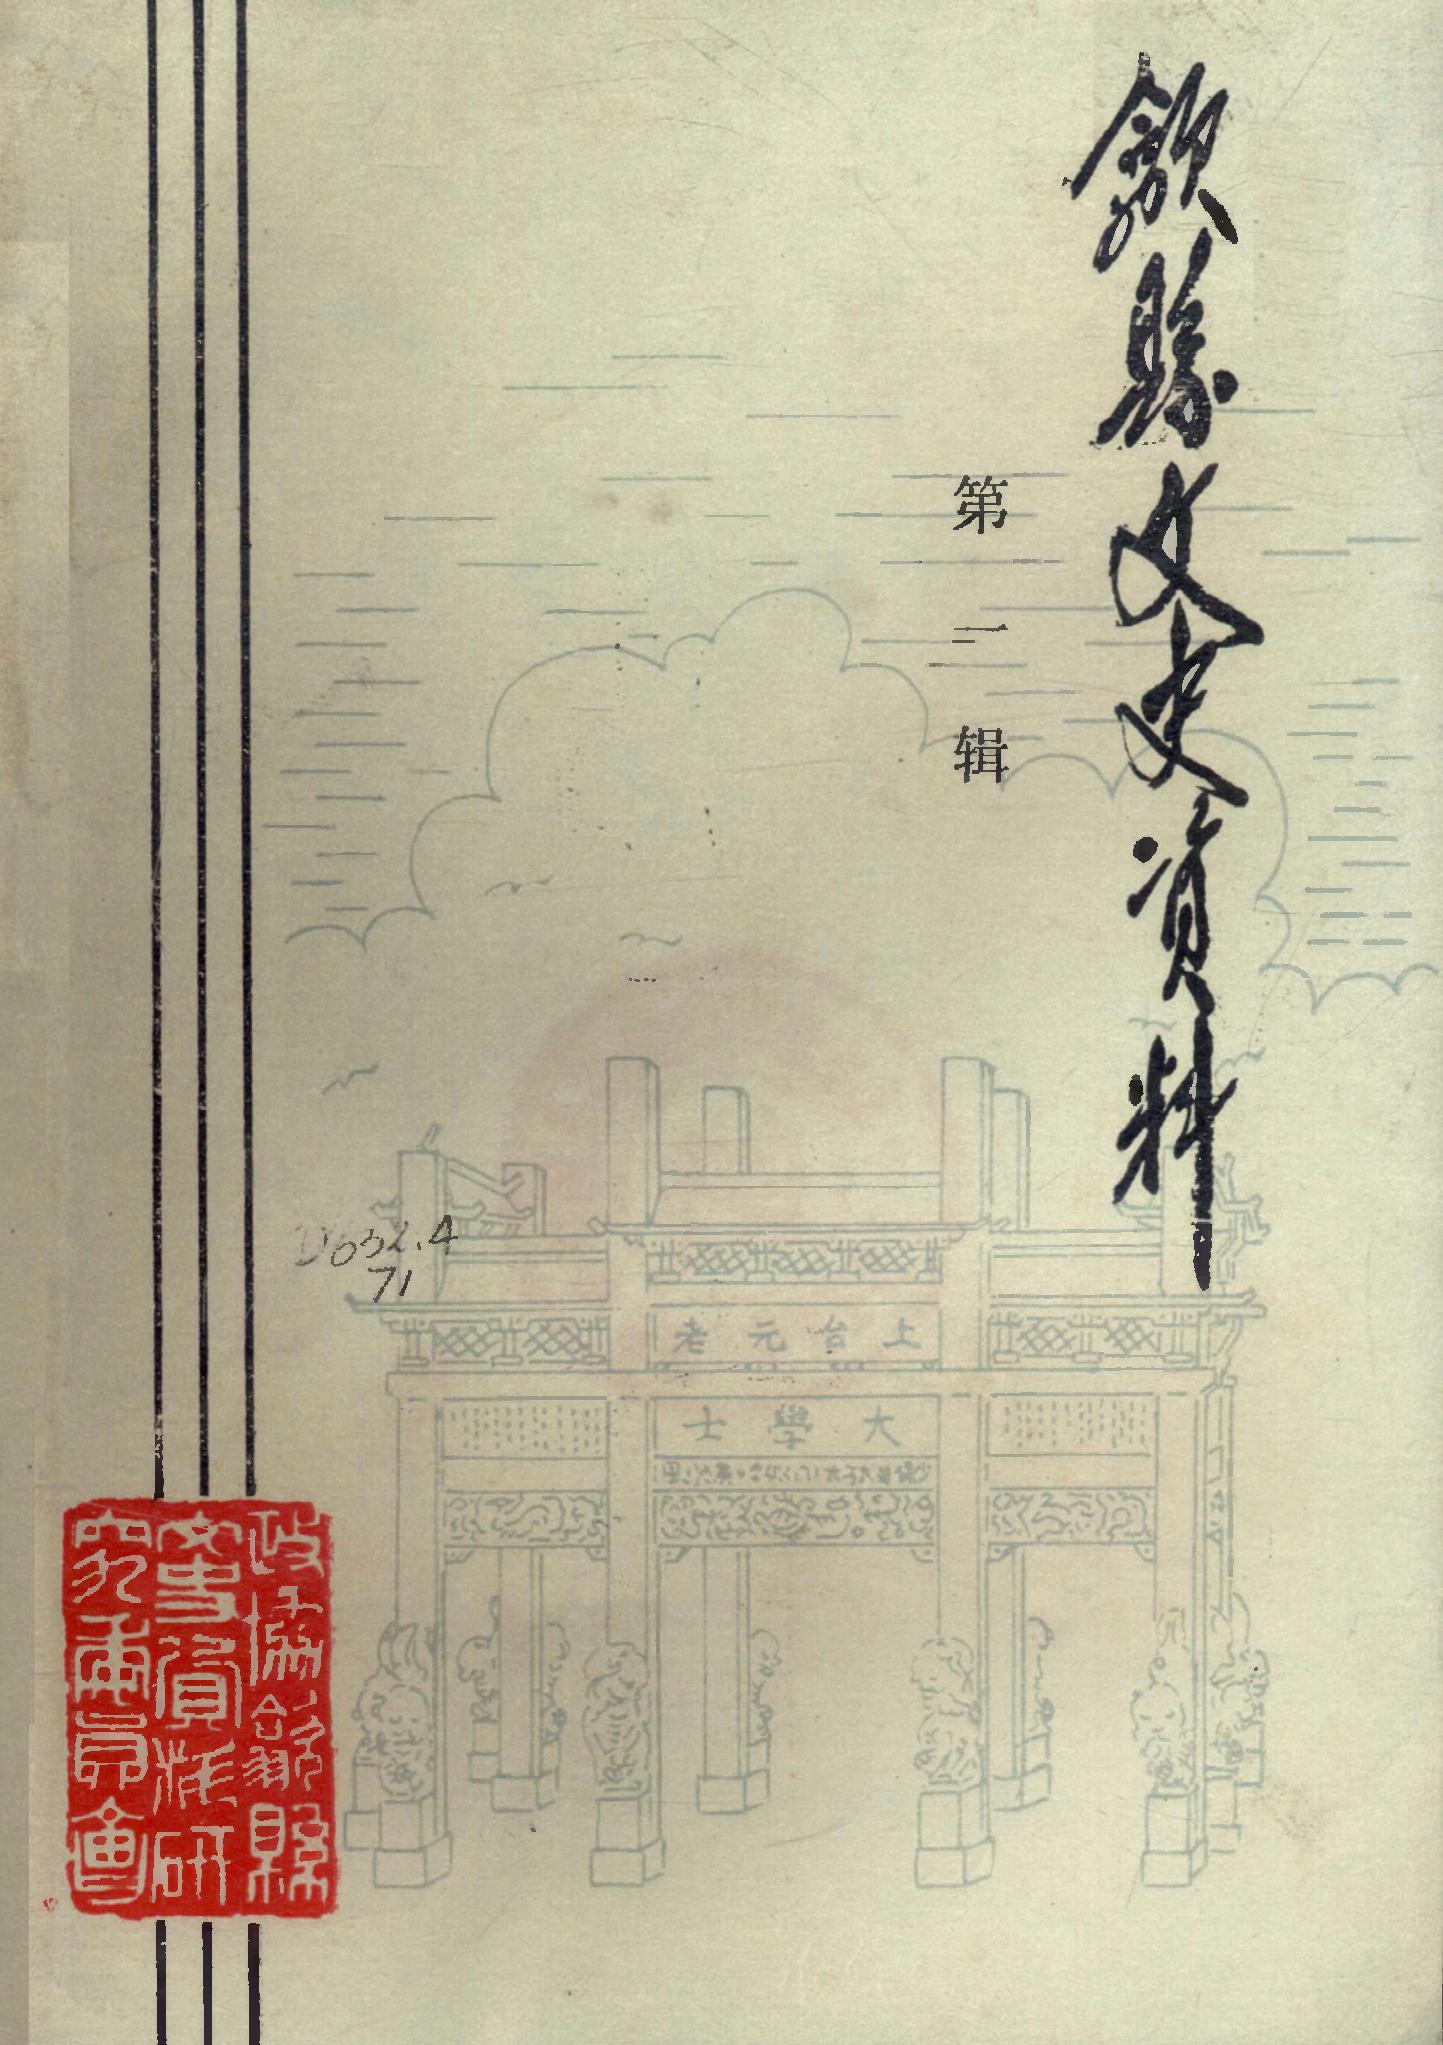 歙縣文史资料
第一辑
D652.4
71
上台元老
大學士
政協歙縣
文史資料研
究委員會